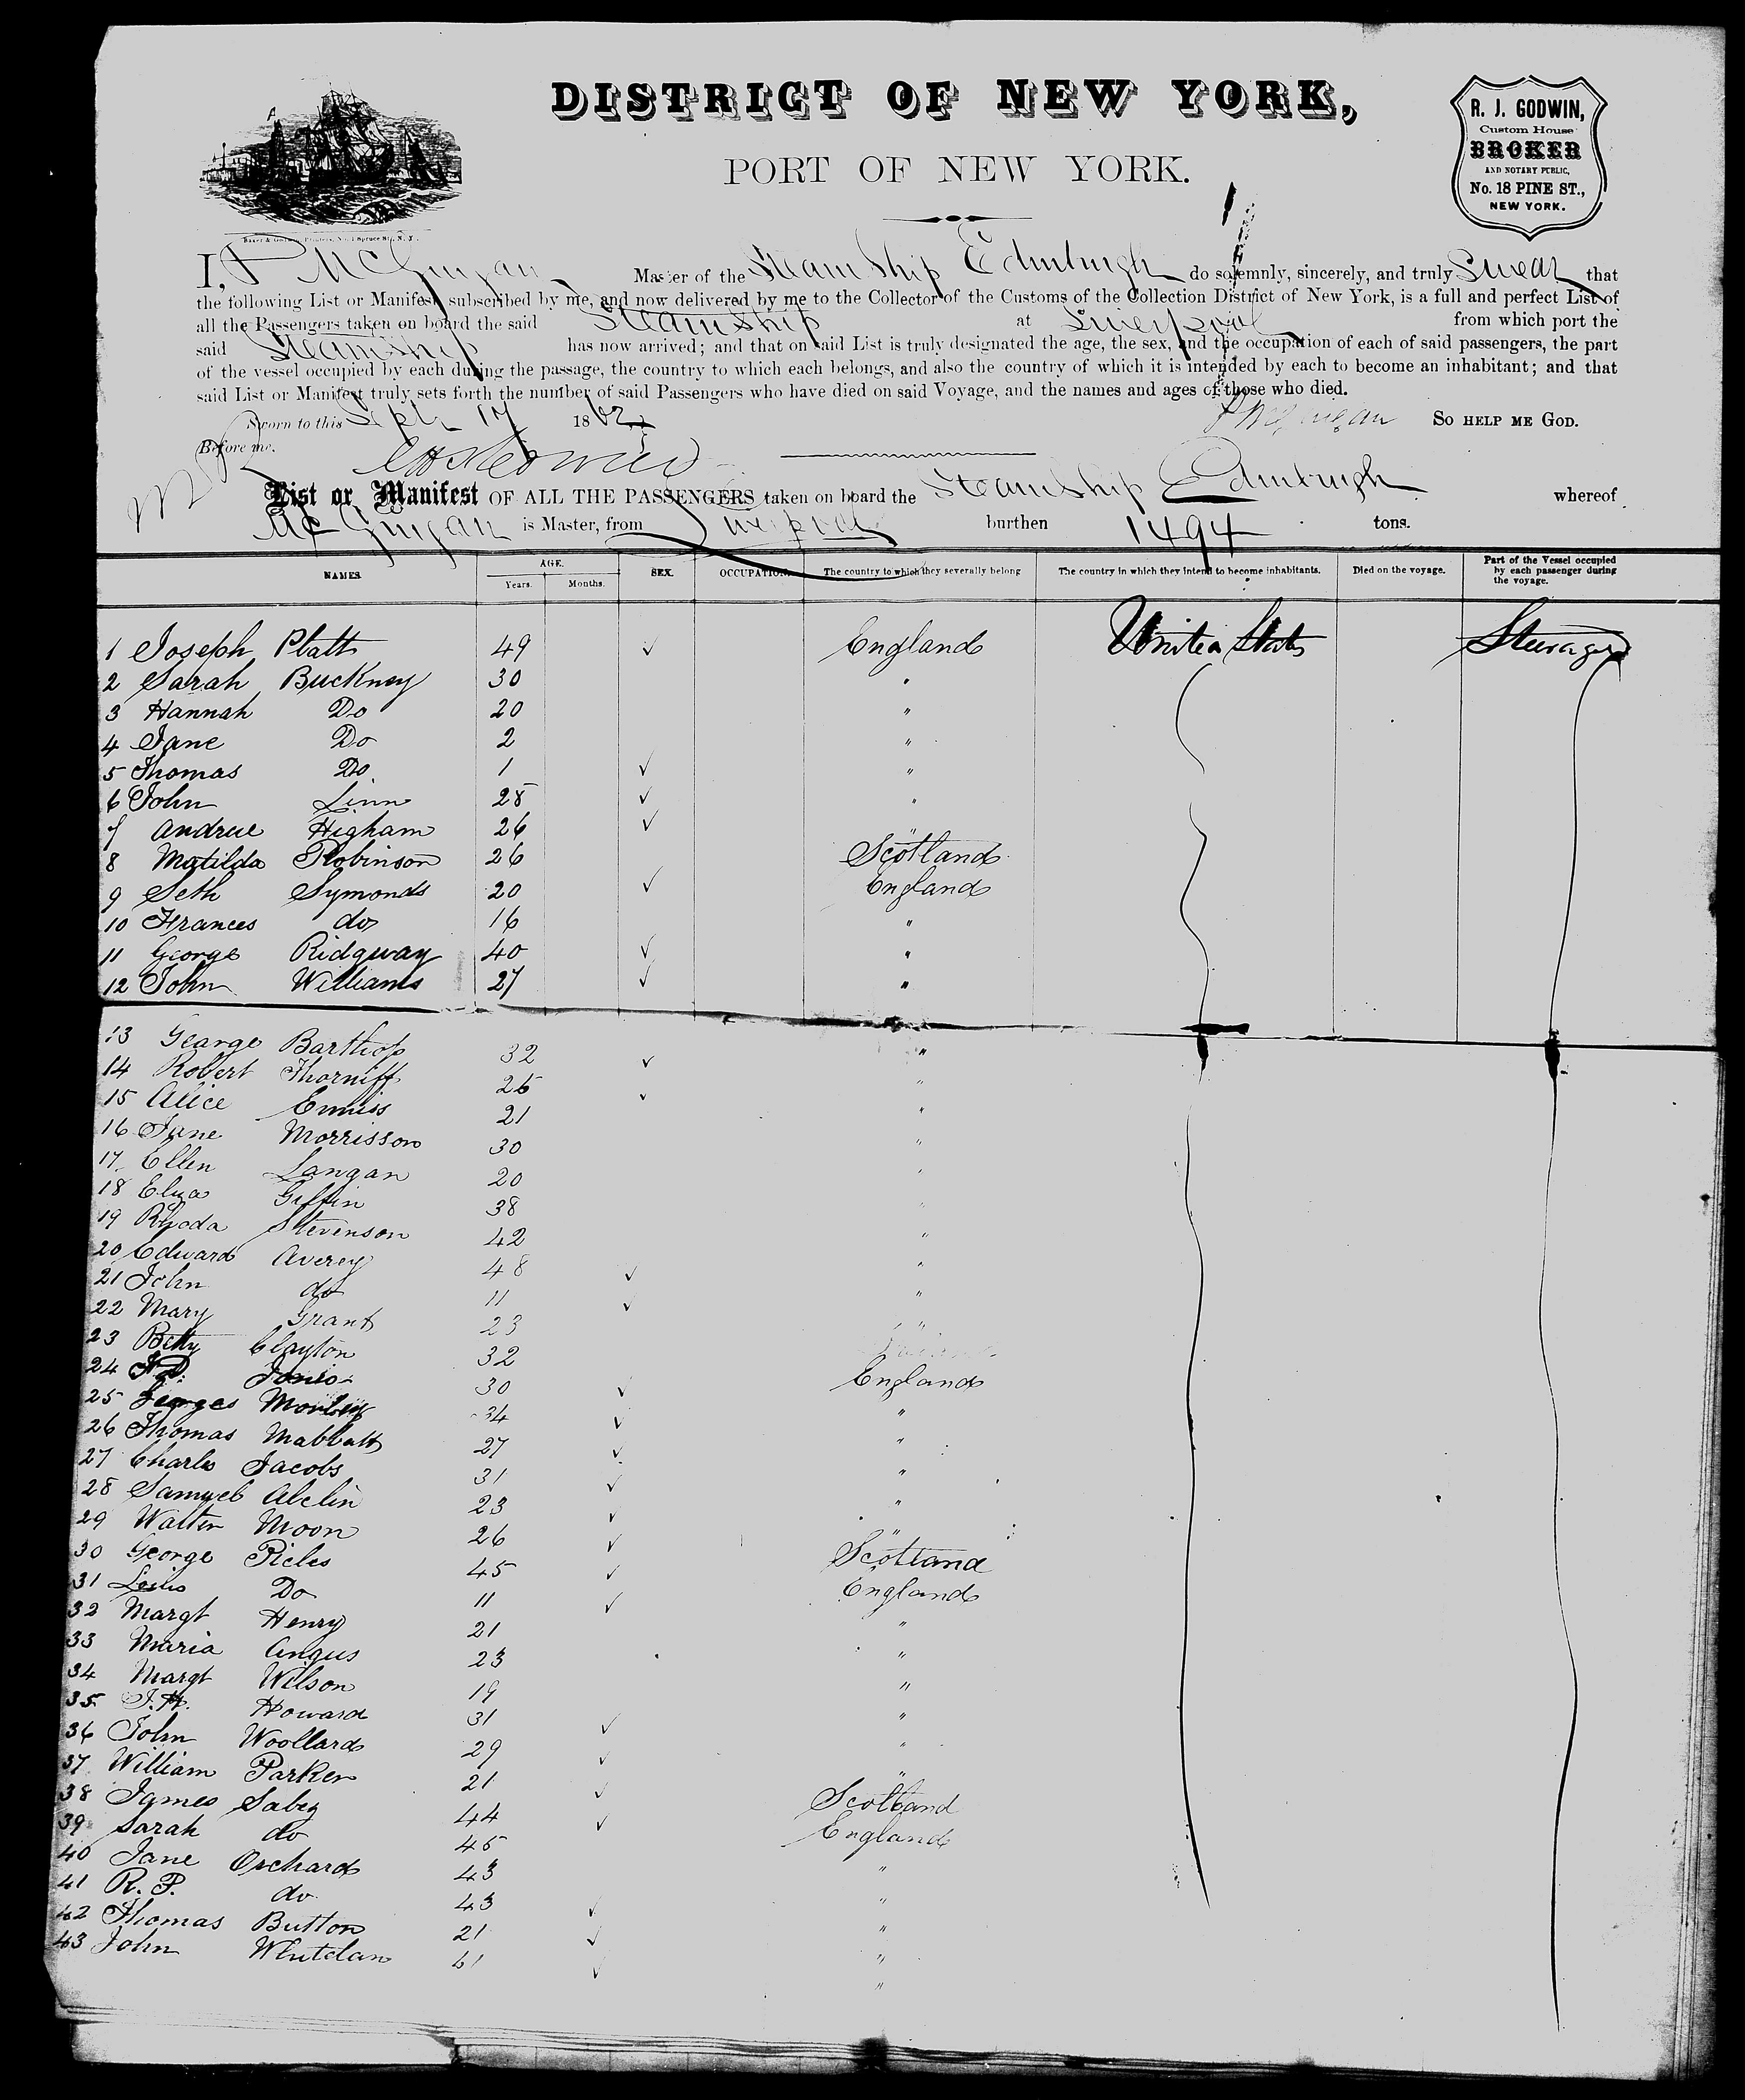 DISTRICT OF NEW YORK,
PORT OF NEW YORK.
R. J. GODWIN,
Custom House
BROKER
AND NOTARY PUBLIC,
No. 18 PINE ST.,
NEW YORK.
Baker & Godwin, Printers, No. 1 Spruce St., N. Y.
I, P McGuigan Master of the Steam Ship Edinburgh do solemnly, sincerely, and truly Swear that
the following List or Manifest, subscribed by me, and now delivered by me to the Collector of the Customs of the Collection District of New York, is a full and perfect List of
all the Passengers taken on board the said Steamship at Liverpool from which port the
said Steamship has now arrived; and that on said List is truly designated the age, the sex, and the occupation of each of said passengers, the part
of the vessel occupied by each during the passage, the country to which each belongs, and also the country of which it is intended by each to become an inhabitant; and that
said List or Manifest truly sets forth the number of said Passengers who have died on said Voyage, and the names and ages of those who died.
Sworn to this Sept 17 1862 P McGuigan SO HELP ME GOD.
Before me,
List or Manifest OF ALL THE PASSENGERS taken on board the Steamship Edinburgh whereof
McGuigan is Master, from Liverpool burthen 1494 tons.
NAMES. AGE. Years. Months. SEX. OCCUPATION. The country to which they severally belong The country in which they intend to become inhabitants. Died on the voyage. Part of the Vessel occupied by each passenger during the voyage.
1 Joseph Platt 49 ✓ England United States Steerage
2 Sarah Buckney 30 "
3 Hannah Do 20 "
4 Jane Do 2 "
5 Thomas Do 1 ✓ "
6 John Linn 28 ✓ "
7 Andrew Higham 26 ✓ "
8 Matilda Robinson 26 Scotland
9 Seth Symonds 20 ✓ England
10 Frances do 16 "
11 George Ridgway 40 ✓ "
12 John Williams 27 ✓ "
13 George Barthop 32 ✓ "
14 Robert Thorniff 26 ✓ "
15 Alice Enniss 21 "
16 Jane Morrisson 30 "
17 Ellen Langan 20 "
18 Eliza Giffin 38 "
19 Rhoda Stevenson 42 "
20 Edward Averey 48 ✓ "
21 John do 11 ✓ "
22 Mary Grant 23 "
23 Betty Clayton 32
24 Jones 30 ✓ England
25 George 34 ✓ "
26 Thomas Mabbatt 27 ✓ "
27 Charles Jacobs 31 ✓ "
28 Samuel Abelin 23 ✓ "
29 Walter Moon 26 ✓ "
30 George Picles 45 ✓ Scotland
31 Do 11 ✓ England
32 Margt Henry 21 "
33 Maria Angus 23 "
34 Margt Wilson 19 "
35 J. H. Howard 31 ✓ "
36 John Woollard 29 ✓ "
37 William Parker 21 ✓ "
38 James Sabey 44 ✓ Scotland
39 Sarah do 45 England
40 Jane Orchard 43 "
41 R. P. do 43 ✓ "
42 Thomas Button 21 ✓ "
43 John 61 ✓ "
"